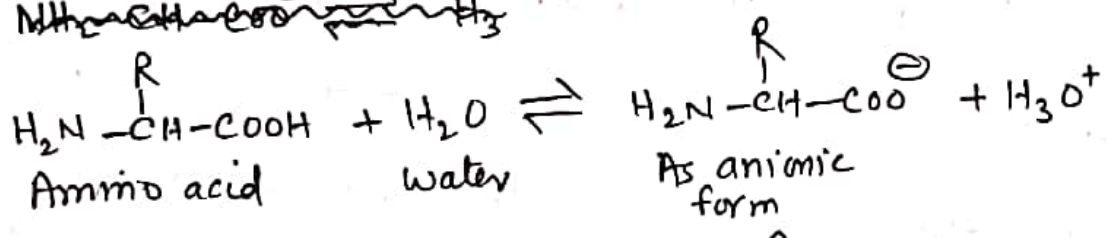 R R
H₂N-CH-COOH + H₂O ⇌ H₂N-CH-COO⊖ + H₃O⁺
Ammino acid water As anionic
form